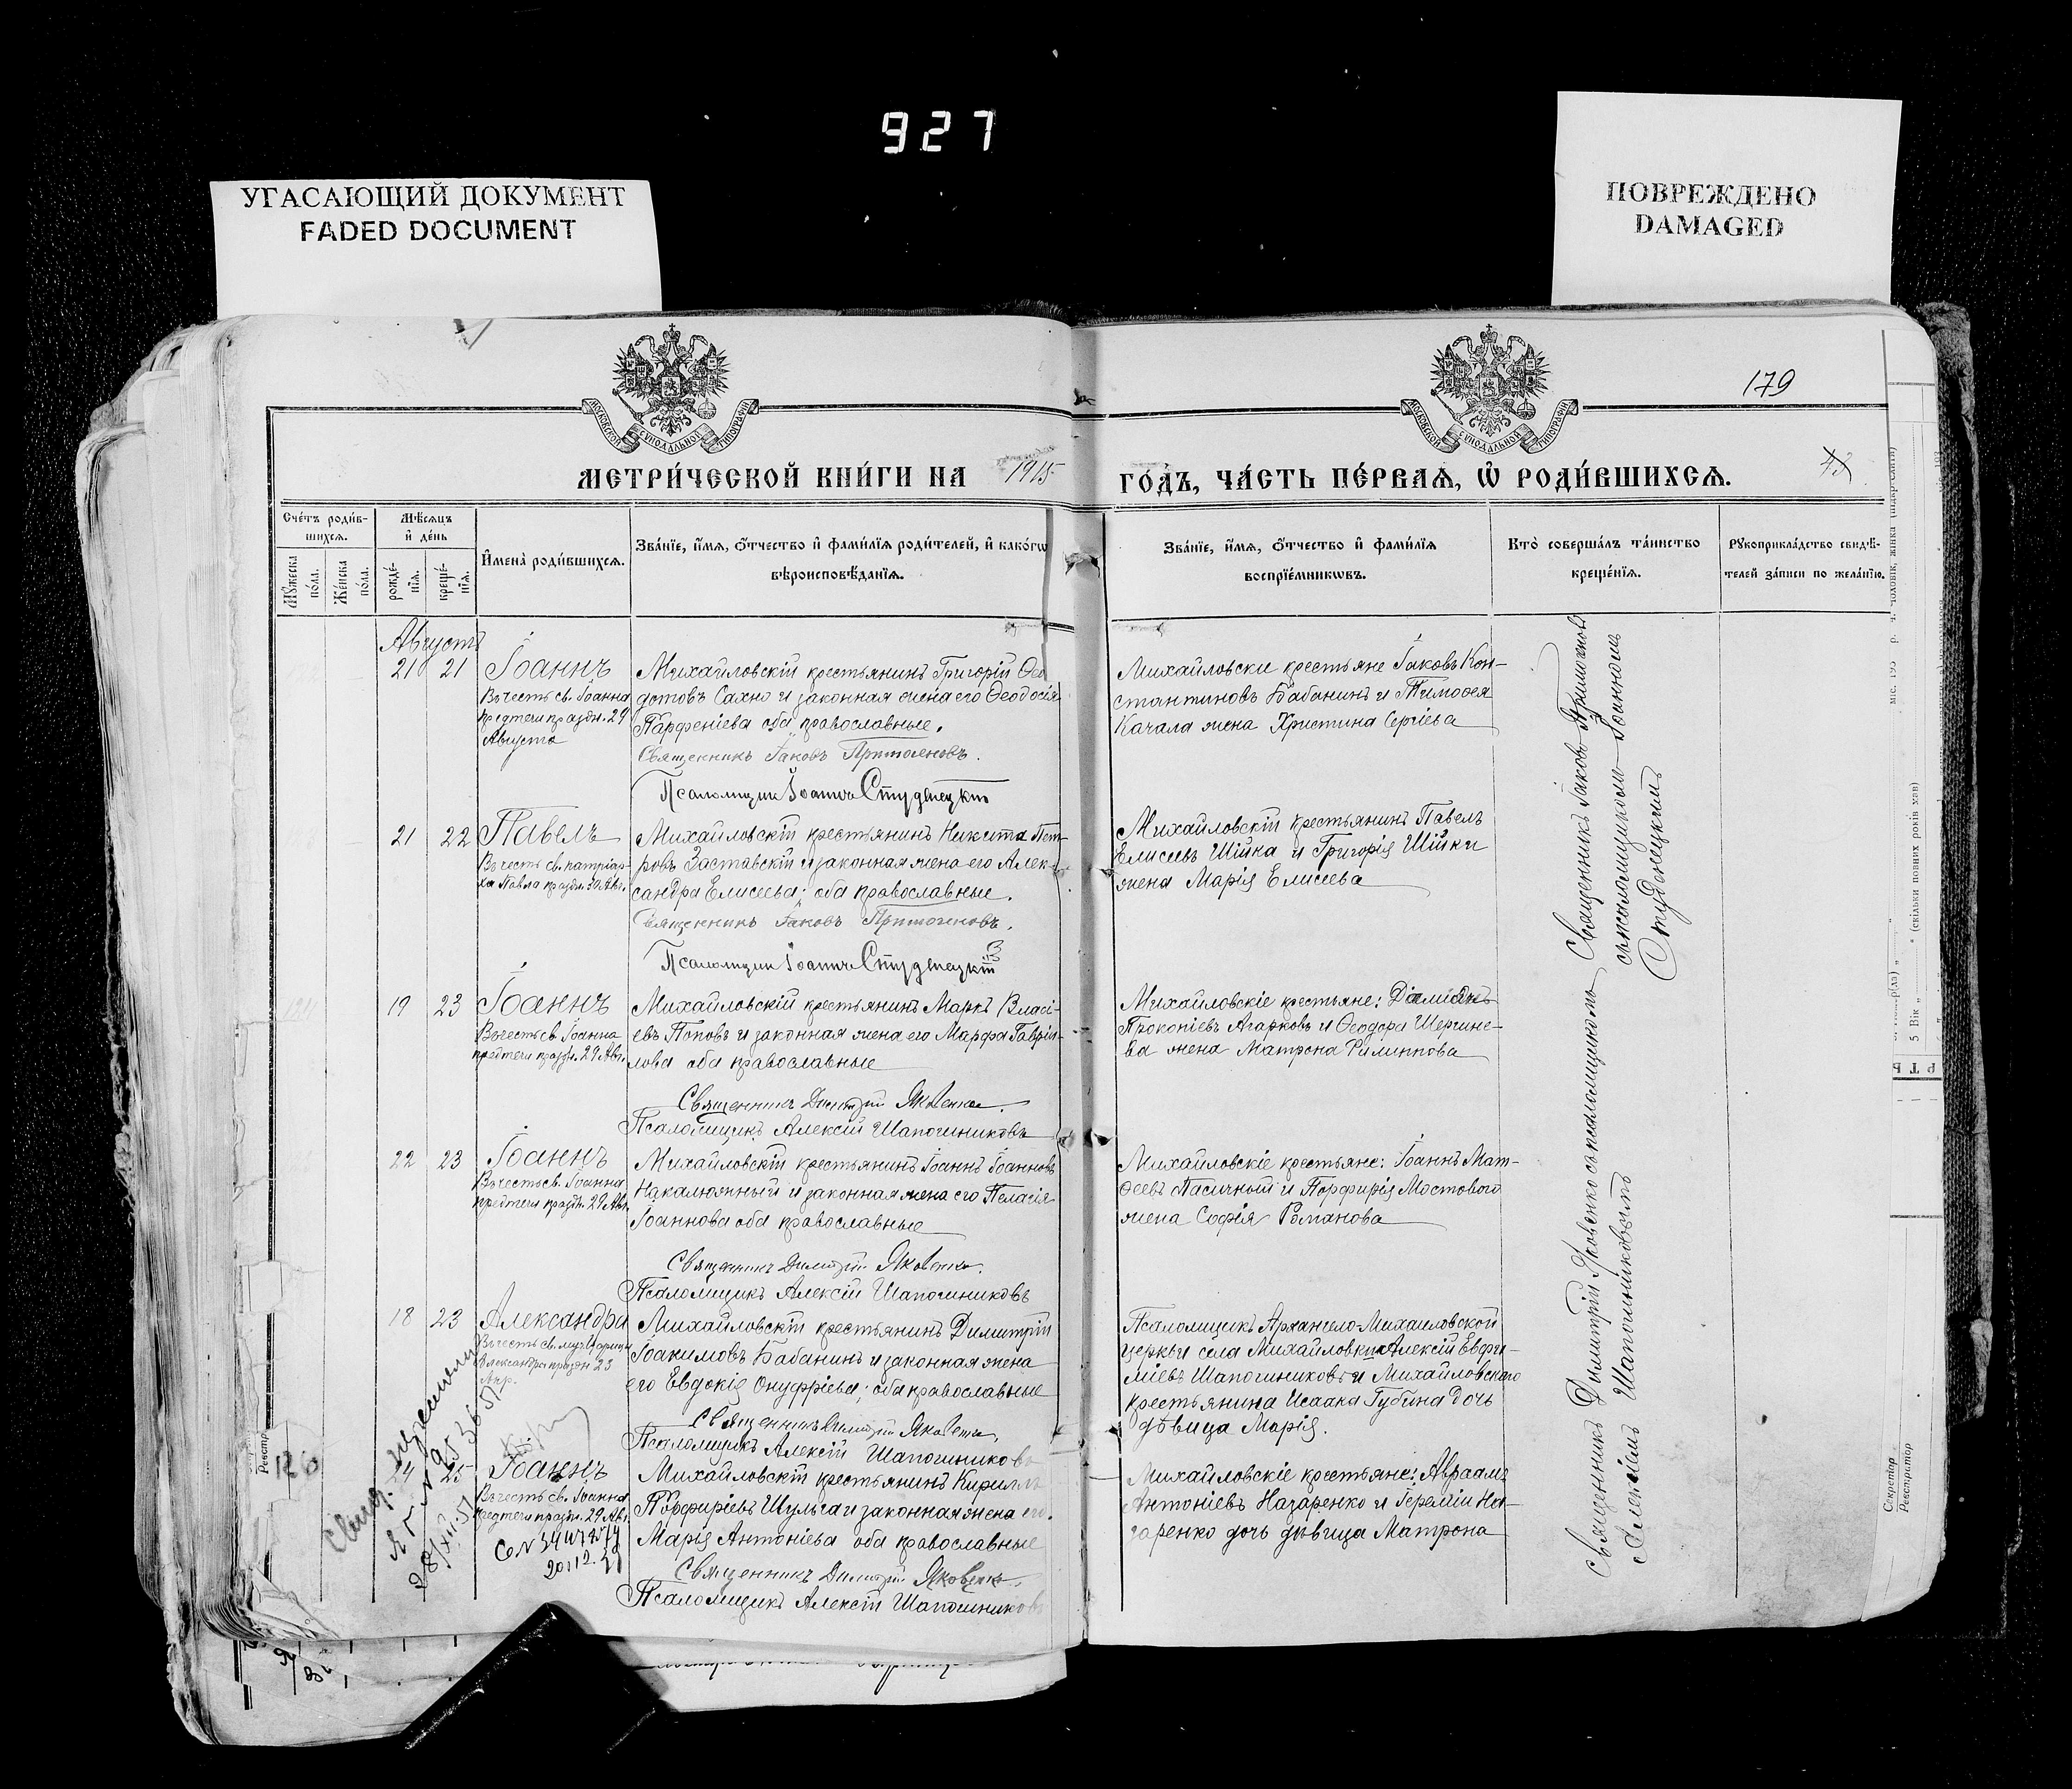 927
УГАСАЮЩИЙ ДОКУМЕНТ
FADED DOCUMENT
ПОВРЕЖДЕНО
DAMAGED
МОСКОВСКОЙ СѴНОДАЛЬНОЙ ТИПОГРАФІИ
МОСКОВСКОЙ СѴНОДАЛЬНОЙ ТИПОГРАФІИ
179
МЕТРИ́ЧЕСКОЙ КНИ́ГИ НА 1915
ГО́ДЪ, ЧА́СТЬ ПЕ́РВАѦ, Ѡ҆ РОДИ́ВШИХСѦ.
43
Сче́тъ роди́в-
шихсѧ.
Мꙋ́жеска по́ла.
Же́нска по́ла.
Мѣ́сѧцъ
и҆ де́нь
рожде́-
нїѧ.
креще́-
нїѧ.
И҆мена̀ роди́вшихсѧ.
Зва́нїе, и҆́мѧ, ѻ҆́тчество и҆ фами́лїѧ роди́телей, и҆ како́гѡ
вѣроисповѣ́данїѧ.
Зва́нїе, и҆́мѧ, ѻ҆́тчество и҆ фами́лїѧ
воспрїе́мникѡвъ.
Кто̀ соверша́лъ та́инство
креще́нїѧ.
Рꙋкоприкла́дство свидѣ́-
телей за́писи по жела́нїю.
Августъ
21 21 Іоаннъ
Въ честь св. Іоанна
предтечи праздн. 29
Августа
Михайловскій крестьянинъ Григорій Ѳео
дотовъ Сахно и законная жена его Ѳеодосія
Парфеніева оба православные.
Священникъ Іаковъ Примогеновъ.
Псаломщик Іоаннъ Студенецкій
Михайловски крестьяне Іаковъ Кон-
стантиновъ Бабанинъ и Тимоѳея
Качала жена Христина Сергіева
21 22 Павелъ
Въ честь св. патріар-
ха Павла праздн. 30 Авг.
Михайловскій крестьянинъ Никита Пет-
ровъ Заставскій и законная жена его Алек-
сандра Елисеева; оба православные.
Священникъ Іаковъ Примогеновъ.
Псаломщик Іоаннъ Студенецкій
Михайловскій крестьянинъ Павелъ
Елисеевъ Шійка и Григорія Шійки
жена Марія Елисеева
19 23 Іоаннъ
Въ честь св. Іоанна
предтечи праздн. 29 Авг.
Михайловскій крестьянинъ Маркъ Власі-
евъ Поповъ и законная жена его Марфа Гаврі-
лова оба православные
Священникъ Димитрій Яковенко.
Псаломщикъ Алексій Шапошниковъ
Михайловскіе крестьяне: Даміанъ
Прокопіевъ Агарковъ и Ѳеодора Шергине-
ва жена Матрона Филиппова
22 23 Іоаннъ
Въ честь св. Іоанна
предтечи праздн. 29 Авг.
Михайловскій крестьянинъ Іоаннъ Іоанновъ
Накалюжный и законная жена его Пелагія
Іоаннова оба православные
Священникъ Димитрій Яковенко.
Псаломщикъ Алексій Шапошниковъ
Михайловскіе крестьяне: Іоаннъ Мат-
ѳеевъ Пасичный и Порфирія Мостового
жена Софія Романова
18 23 Александра
Въ честь св. муч. Царицы
Александры праздн 23
Апр.
Михайловскій крестьянинъ Димитрій
Іоакимовъ Бабанинъ и законная жена
его Евдокія Онуфріева; оба православные
Священникъ Димитрій Яковенко,
Псаломщикъ Алексій Шапошниковъ
Псаломщикъ Архангело-Михаиловской
церкви села Михайловки Алексій Евфи-
міевъ Шапошниковъ и Михайловского
крестьянина Исаака Губина дочь
дѣвица Марія.
24 25 Іоаннъ
Въ честь св. Іоанна
предтечи праздн. 29 Авг.
Михайловскій крестьянинъ Кириллъ
Порфиріевъ Шульга и законная жена его
Марія Антоніева оба православные
Священникъ Димитрій Яковенко.
Псаломщикъ Алексій Шапошниковъ
Михайловскіе крестьяне: Авраамъ
Антоніевъ Назаренко и Іереміи На-
заренко дочь дѣвица Матрона
Священникъ Іаковъ Примогеновъ
съ псаломщикомъ Іоанномъ
Студенецкимъ
Священникъ Димитрій Яковенко съ псаломщикомъ
Алексіемъ Шапошниковымъ
5 Вік „ “ (скільки повних років мав)
Секретар
Реєстратор